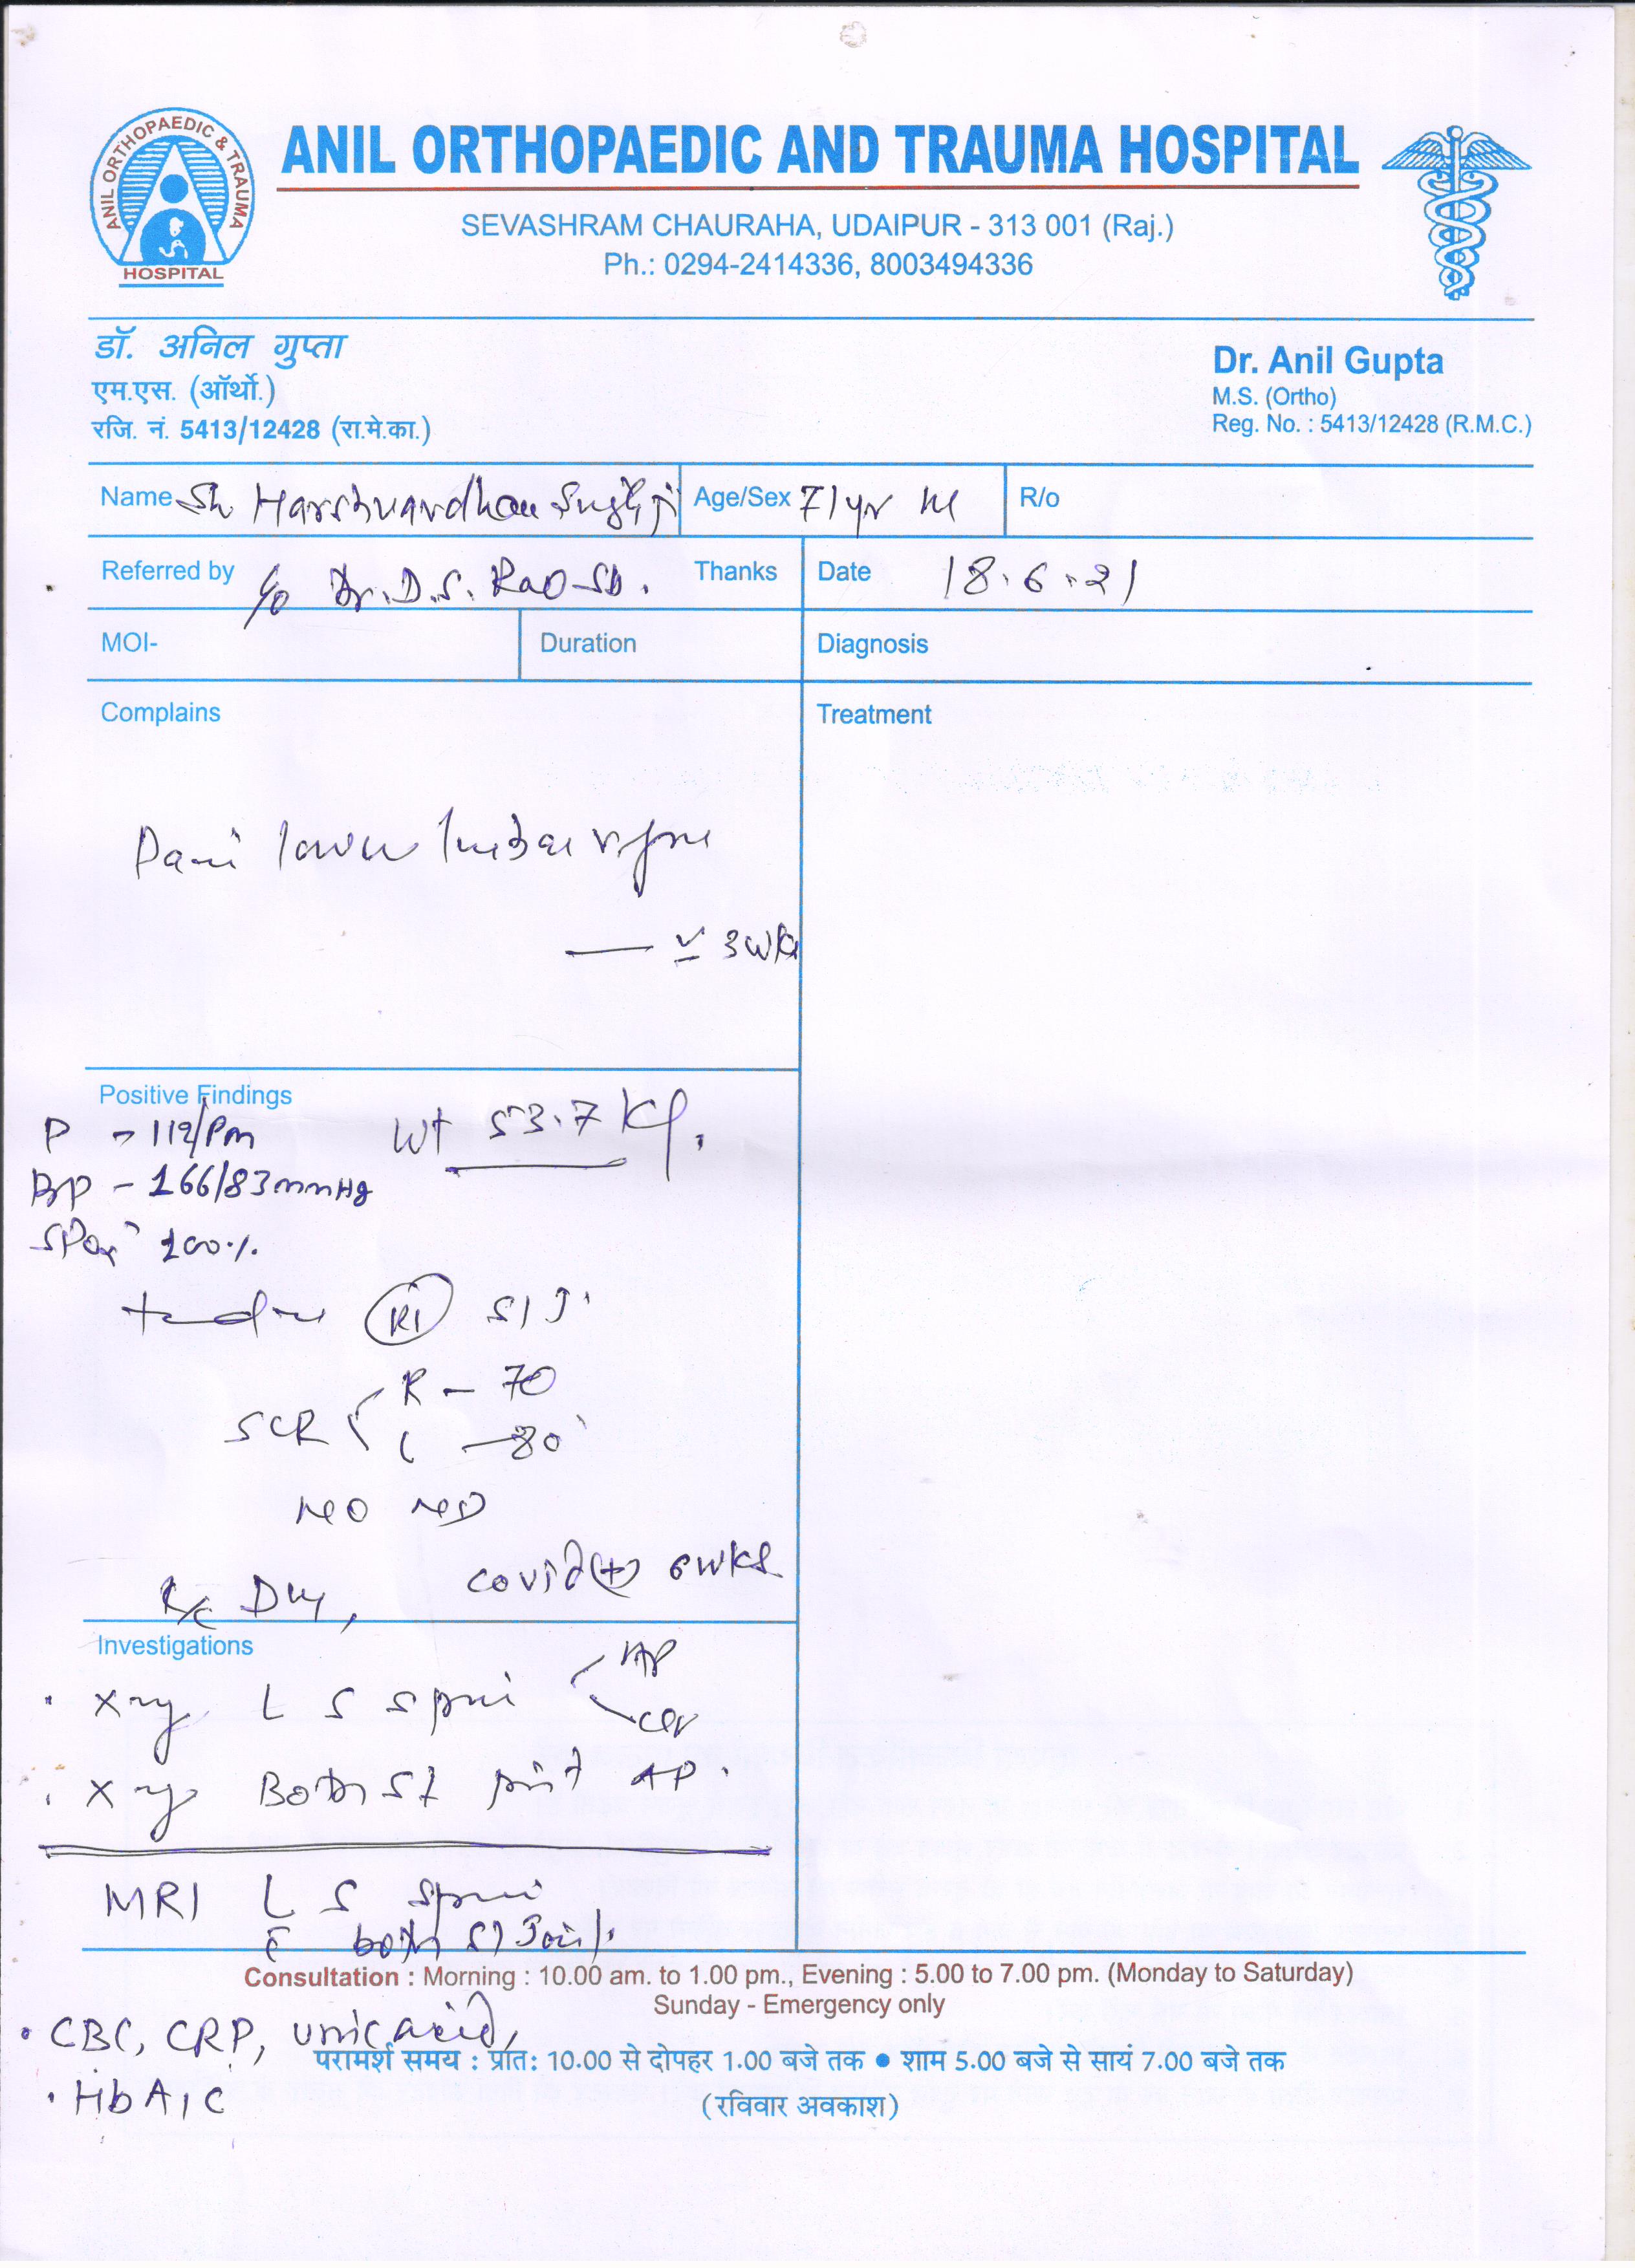 ANIL ORTHOPAEDIC & TRAUMA
HOSPITAL
ANIL ORTHOPAEDIC AND TRAUMA HOSPITAL
SEVASHRAM CHAURAHA, UDAIPUR - 313 001 (Raj.)
Ph.: 0294-2414336, 8003494336
डॉ. अनिल गुप्ता
एम.एस. (ऑर्थो.)
रजि. नं. 5413/12428 (रा.मे.का.)
Dr. Anil Gupta
M.S. (Ortho)
Reg. No. : 5413/12428 (R.M.C.)
Name Sh Harshvardhan Singh ji Age/Sex 71 yr M R/o
Referred by c/o Dr. D.S. Rao Sb. Thanks Date 18.6.21
MOI- Duration Diagnosis
Complains Treatment
Pain lower lumbar spine
— 3 wks
Positive Findings
P → 112/Pm Wt 53.7 Kg.
BP - 166/83 mmHg
SPO2 100%
tender Rt SIJ
R - 70
L - 80
NO ND
Covid (+) 6 wks
Investigations
. X ray L S spine AP
. X ray Both SI joint AP.
MRI L S spine
c̄ both SI Joint.
Consultation : Morning : 10.00 am. to 1.00 pm., Evening : 5.00 to 7.00 pm. (Monday to Saturday)
Sunday - Emergency only
. CBC, CRP, uric acid,
परामर्श समय : प्रातः 10.00 से दोपहर 1.00 बजे तक ● शाम 5.00 बजे से सायं 7.00 बजे तक
. HbA1C
(रविवार अवकाश)